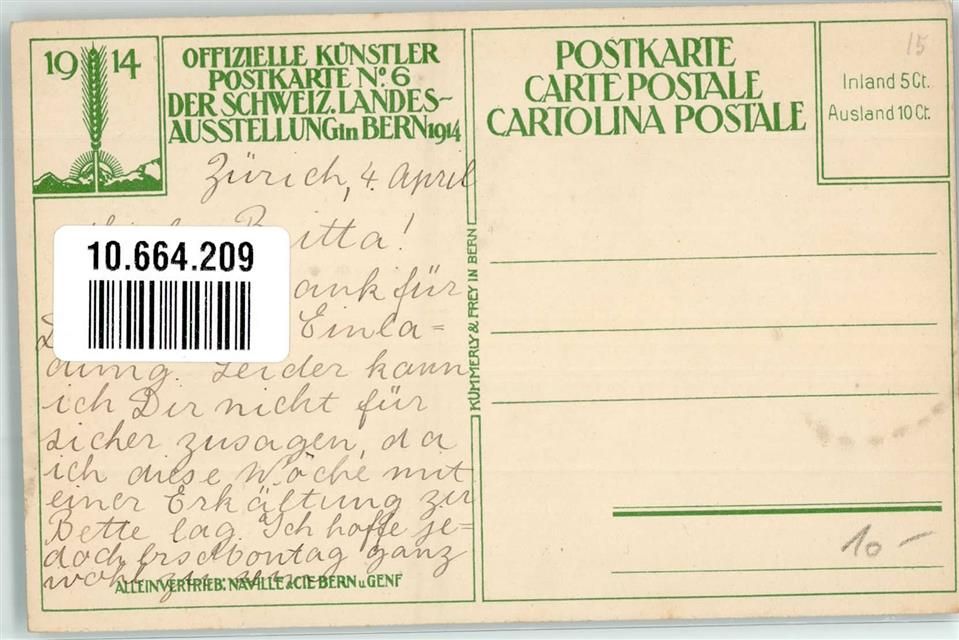 19 14
OFFIZIELLE KÜNSTLER
POSTKARTE No. 6
DER SCHWEIZ. LANDES-
AUSSTELLUNG in BERN 1914
Zürich, 4. April
Britta!
10.664.209
ank für
Einla=
dung. Leider kann
ich Dir nicht für
sicher zusagen, da
ich diese Woche mit
einer Erkältung zu
Bette lag. Ich hoffe je=
doch Montag ganz
wohl zu
ALLEINVERTRIEB: NAVILLE & CIE BERN u. GENF
KÜMMERLY & FREY IN BERN
POSTKARTE
CARTE POSTALE
CARTOLINA POSTALE
15
Inland 5 Ct.
Ausland 10 Ct.
10 -